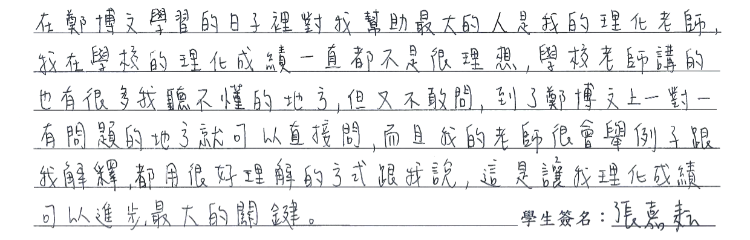 在鄭博文學習的日子裡對我幫助最大的人是我的理化老師,
我在學校的理化成績一直都不是很理想,學校老師講的
也有很多我聽不懂的地方,但又不敢問,到了鄭博文上一對一
有問題的地方就可以直接問,而且我的老師很會舉例子跟
我解釋,都用很好理解的方式跟我說,這是讓我理化成績
可以進步最大的關鍵。 學生簽名:張嘉